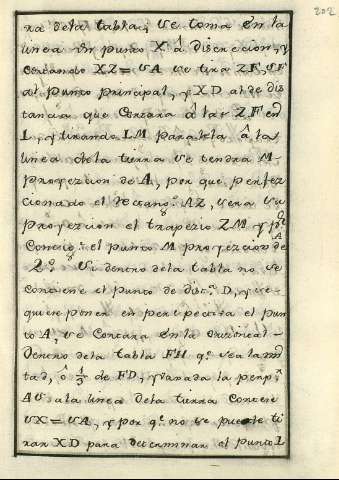 202
ra dela tabla, se toma en la
linea un punto X â discrecion, y
cortando XZ=SA se tira ZF, SF
al punto principal, y XD al de dis
tancia que cortara â las ZF en
L, y tirando LM paralela â la
linea de la tierra se tendrá M
proyeccion de A, por que perfec
cionado el rectang.º AZ, sera su
proyeccion el trapezio ZM y p.r
conseq.te el punto M proyeccion de A
2.º Si dentro dela tabla no se
contiene el punto de dist.ª D, y se
quiere poner en perspectiva el pun
to A, se cortara en la orizontal
dentro dela tabla FH q.e sea la mi
tad, ô 1/3 de FD, y tirada la perp.r
AS, a la linea dela tierra cortese
SX=SA, y por q.e no se puede ti
rar XD para determinar el punto L